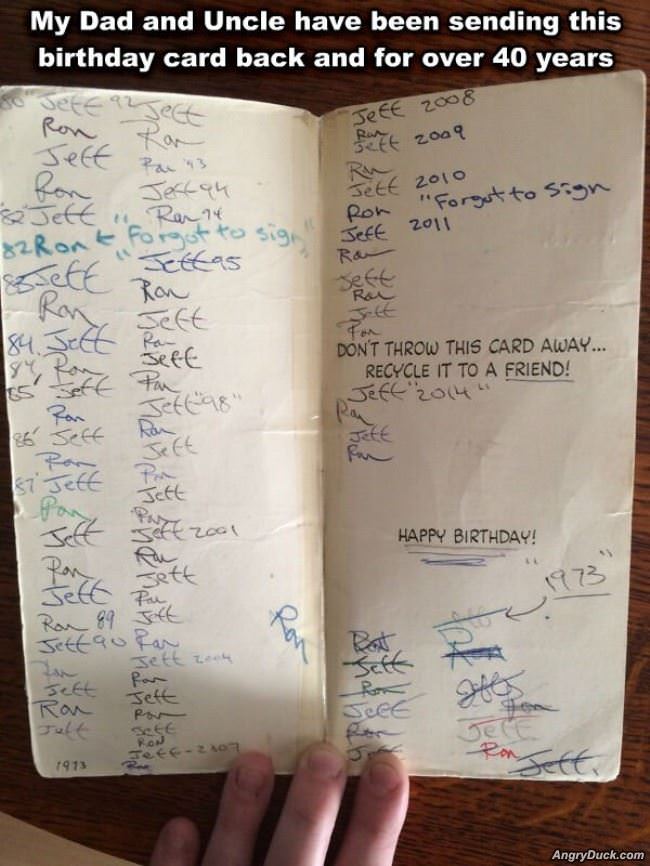 My Dad and Uncle have been sending this
birthday card back and for over 40 years
80" Jeff
Ron
Jeff
Ron
'82 Jeff
82 Ron "Forgot to sign"
83 Jeff
Ron
84. Jeff
84' Ron
85' Jeff
Ron
86' Jeff
Ron
87 Jeff
Ron
Jeff
Ron
Jeff
Ron 89
Jeff 90
Ron
Jeff
Ron
Jeff
1973
92 Jeff
Ron
Ron '93
Jeff 94
Ron 94
Jeff 95
Ron
Jeff
Ron
Jeff
Ron
Jeff "98"
Ron
Jeff
Ron
Jeff
Ron
Jeff 2001
Ron
Jeff
Ron
Jeff
Ron
Jeff 2004
Ron
Jeff
Ron
Jeff
RON
Jeff-2007
Ron
Ron
Jeff 2008
Ron
Jeff 2009
Ron
Jeff 2010
Ron "Forgot to sign
Jeff 2011
Ron
Jeff
Ron
Jeff
Ron
DON'T THROW THIS CARD AWAY...
RECYCLE IT TO A FRIEND!
Jeff "2014"
Ron
Jeff
Ron
HAPPY BIRTHDAY!
"1973"
Ron
Jeff
Ron
Jeff
Ron
Jeff
Ron
Jeff
Ron
Jeff.
AngryDuck.com